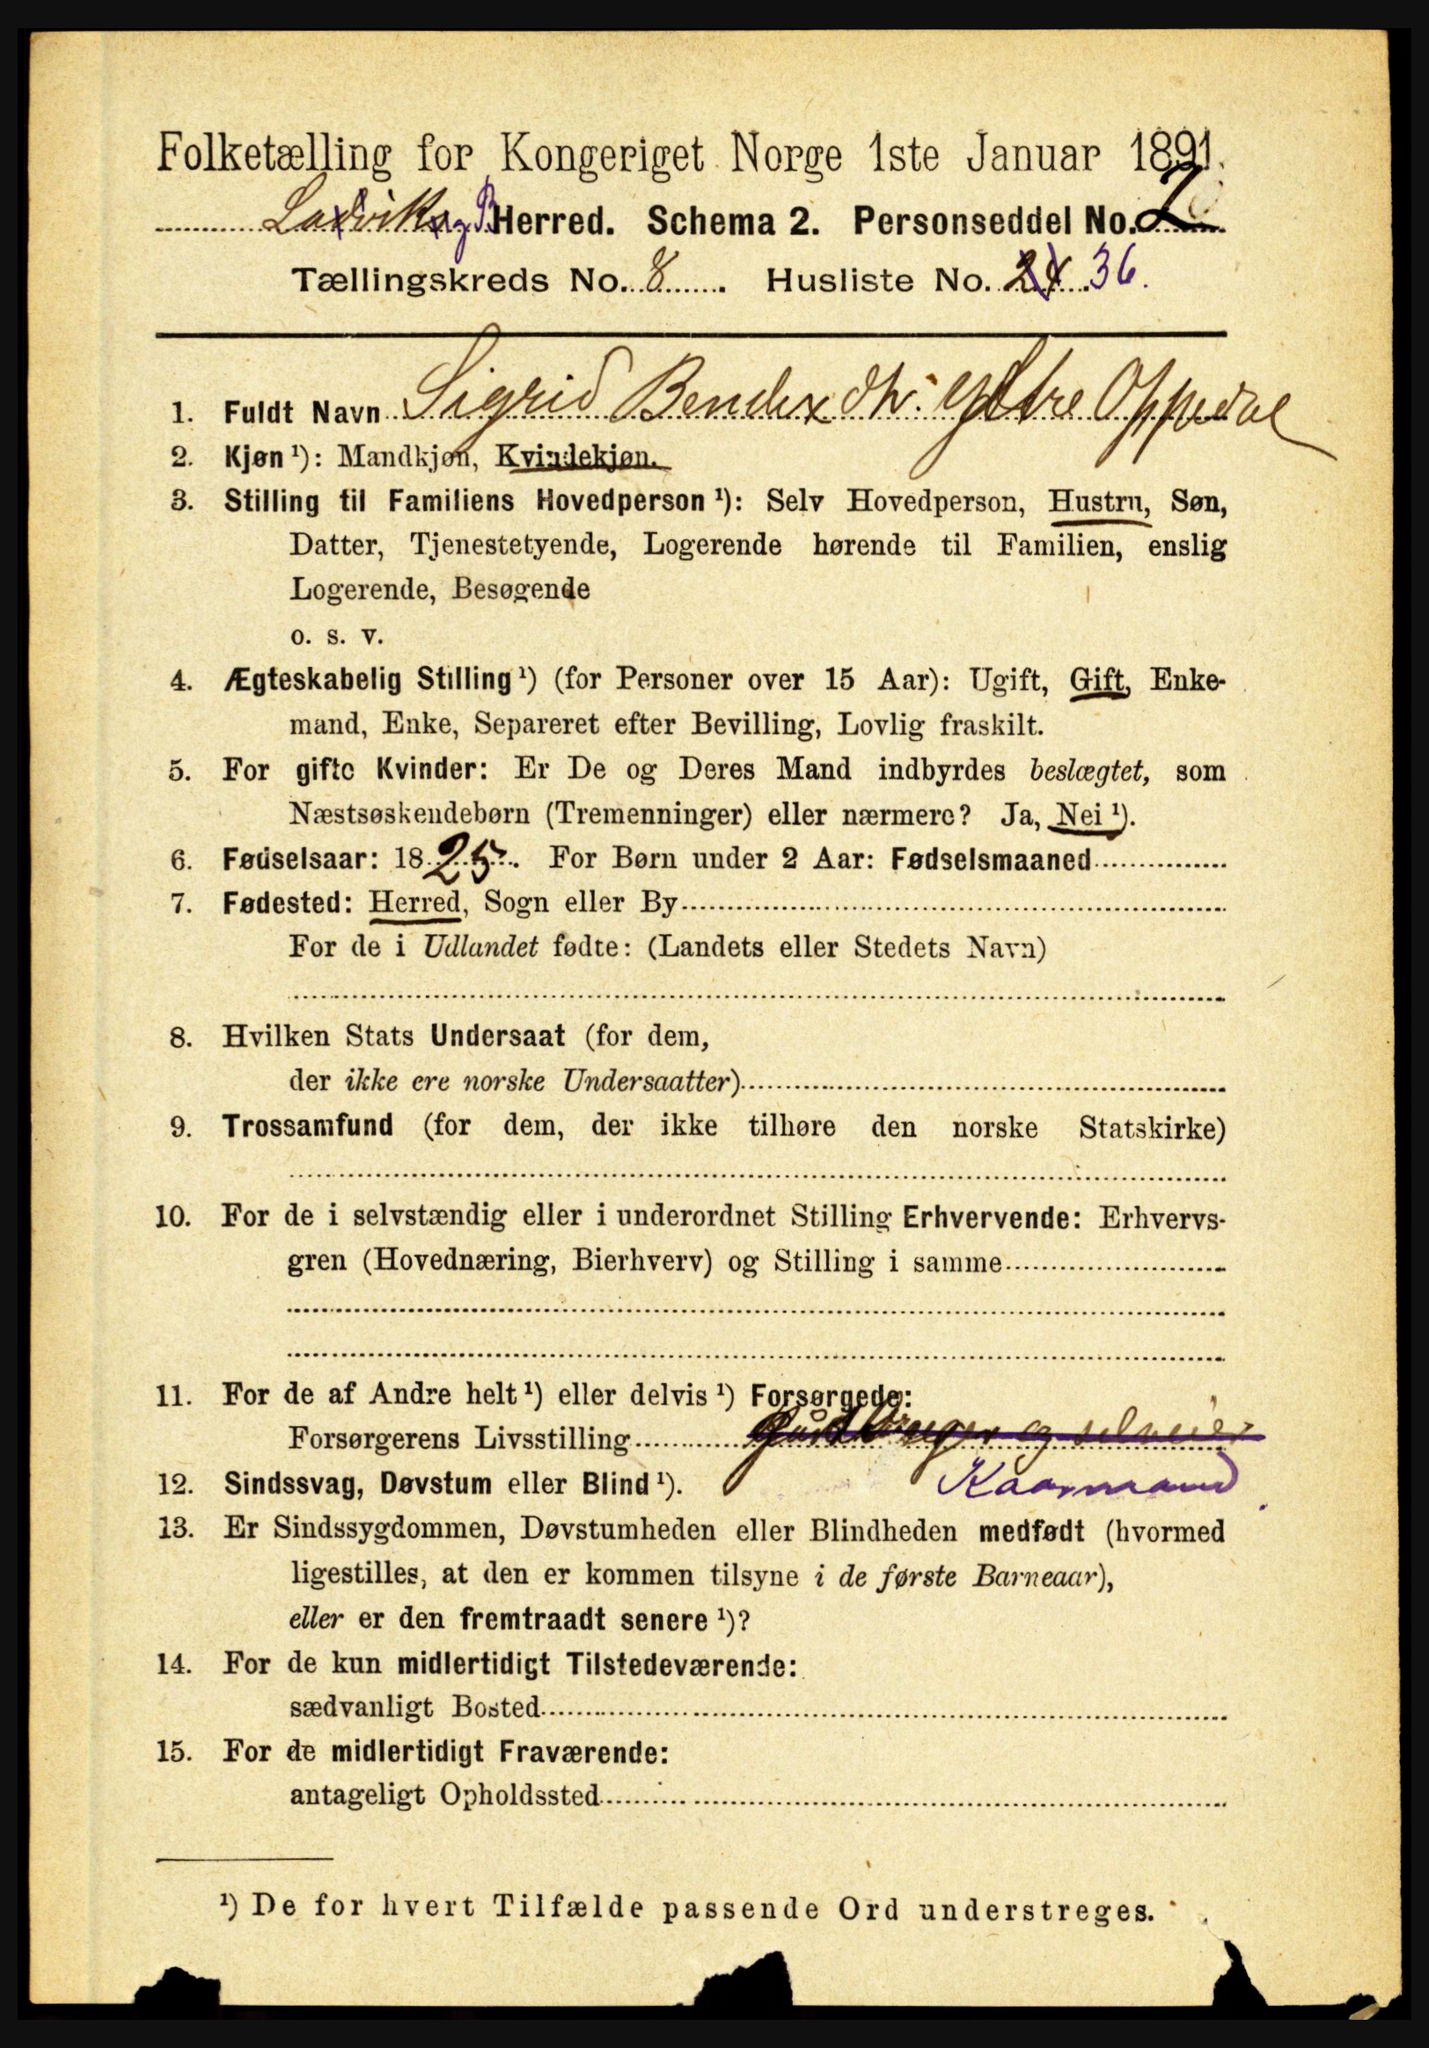 Folketælling for Kongeriget Norge 1ste Januar 1891.
Ladvik og B. Herred. Schema 2. Personseddel No. 2
Tællingskreds No. 8. Husliste No. 24 36.
1. Fuldt Navn Sigrid Bendixdtr. Ytre Oppedal
2. Kjøn ¹): Mandkjøn, Kvindekjøn.
3. Stilling til Familiens Hovedperson ¹): Selv Hovedperson, Hustru, Søn,
Datter, Tjenestetyende, Logerende hørende til Familien, enslig
Logerende, Besøgende
o. s. v.
4. Ægteskabelig Stilling ¹) (for Personer over 15 Aar): Ugift, Gift, Enke-
mand, Enke, Separeret efter Bevilling, Lovlig fraskilt.
5. For gifte Kvinder: Er De og Deres Mand indbyrdes beslægtet, som
Næstsøskendebørn (Tremenninger) eller nærmere? Ja, Nei ¹).
6. Fødselsaar: 1825. For Børn under 2 Aar: Fødselsmaaned
7. Fødested: Herred, Sogn eller By
For de i Udlandet fødte: (Landets eller Stedets Navn)
8. Hvilken Stats Undersaat (for dem,
der ikke ere norske Undersaatter)
9. Trossamfund (for dem, der ikke tilhøre den norske Statskirke)
10. For de i selvstændig eller i underordnet Stilling Erhvervende: Erhvervs-
gren (Hovednæring, Bierhverv) og Stilling i samme
11. For de af Andre helt ¹) eller delvis ¹) Forsørgede:
Forsørgerens Livsstilling og selveier
12. Sindssvag, Døvstum eller Blind ¹). Kaarmand
13. Er Sindssygdommen, Døvstumheden eller Blindheden medfødt (hvormed
ligestilles, at den er kommen tilsyne i de første Barneaar),
eller er den fremtraadt senere ¹)?
14. For de kun midlertidigt Tilstedeværende:
sædvanligt Bosted
15. For de midlertidigt Fraværende:
antageligt Opholdssted
¹) De for hvert Tilfælde passende Ord understreges.